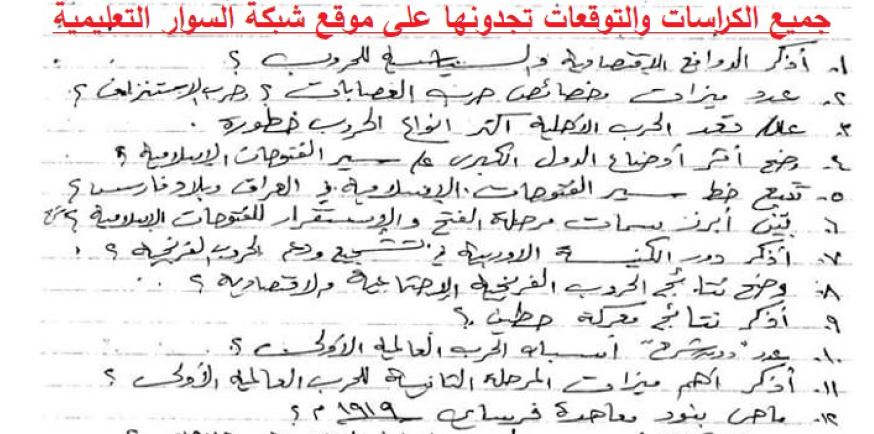 جميع الكراسات والتوقعات تجدونها على موقع شبكة السوار التعليمية
١. أذكر الدوافع الاقتصادية والسياسية للحروب ؟
٢. عدد ميزات وخصائص حرب العصابات ؟ وحرب الاستنزاف ؟
٣. علل تعد الحرب الأهلية أكثر انواع الحروب خطورة .
٤. وضح أثر أوضاع الدول الكبرى على سير الفتوحات الإسلامية ؟
٥. تتبع خط سير الفتوحات الإسلامية في العراق وبلاد فارس ؟
٦. بيّن أبرز سمات مرحلة الفتح والإستقرار للفتوحات الإسلامية ؟
٧. أذكر دور الكنيسة الاوربية في تشجيع ودعم الحروب الفرنجية ؟
٨. وضح نتائج الحروب الفرنجية الإجتماعية والاقتصادية ؟
٩. أذكر نتائج معركة حطين ؟
١٠. عدد "دون شرح" أسباب الحرب العالمية الأولى ؟
١١. أذكر أهم ميزات المرحلة الثانية للحرب العالمية الأولى ؟
١٢. ماهي بنود معاهدة فرساي ١٩١٩ م ؟